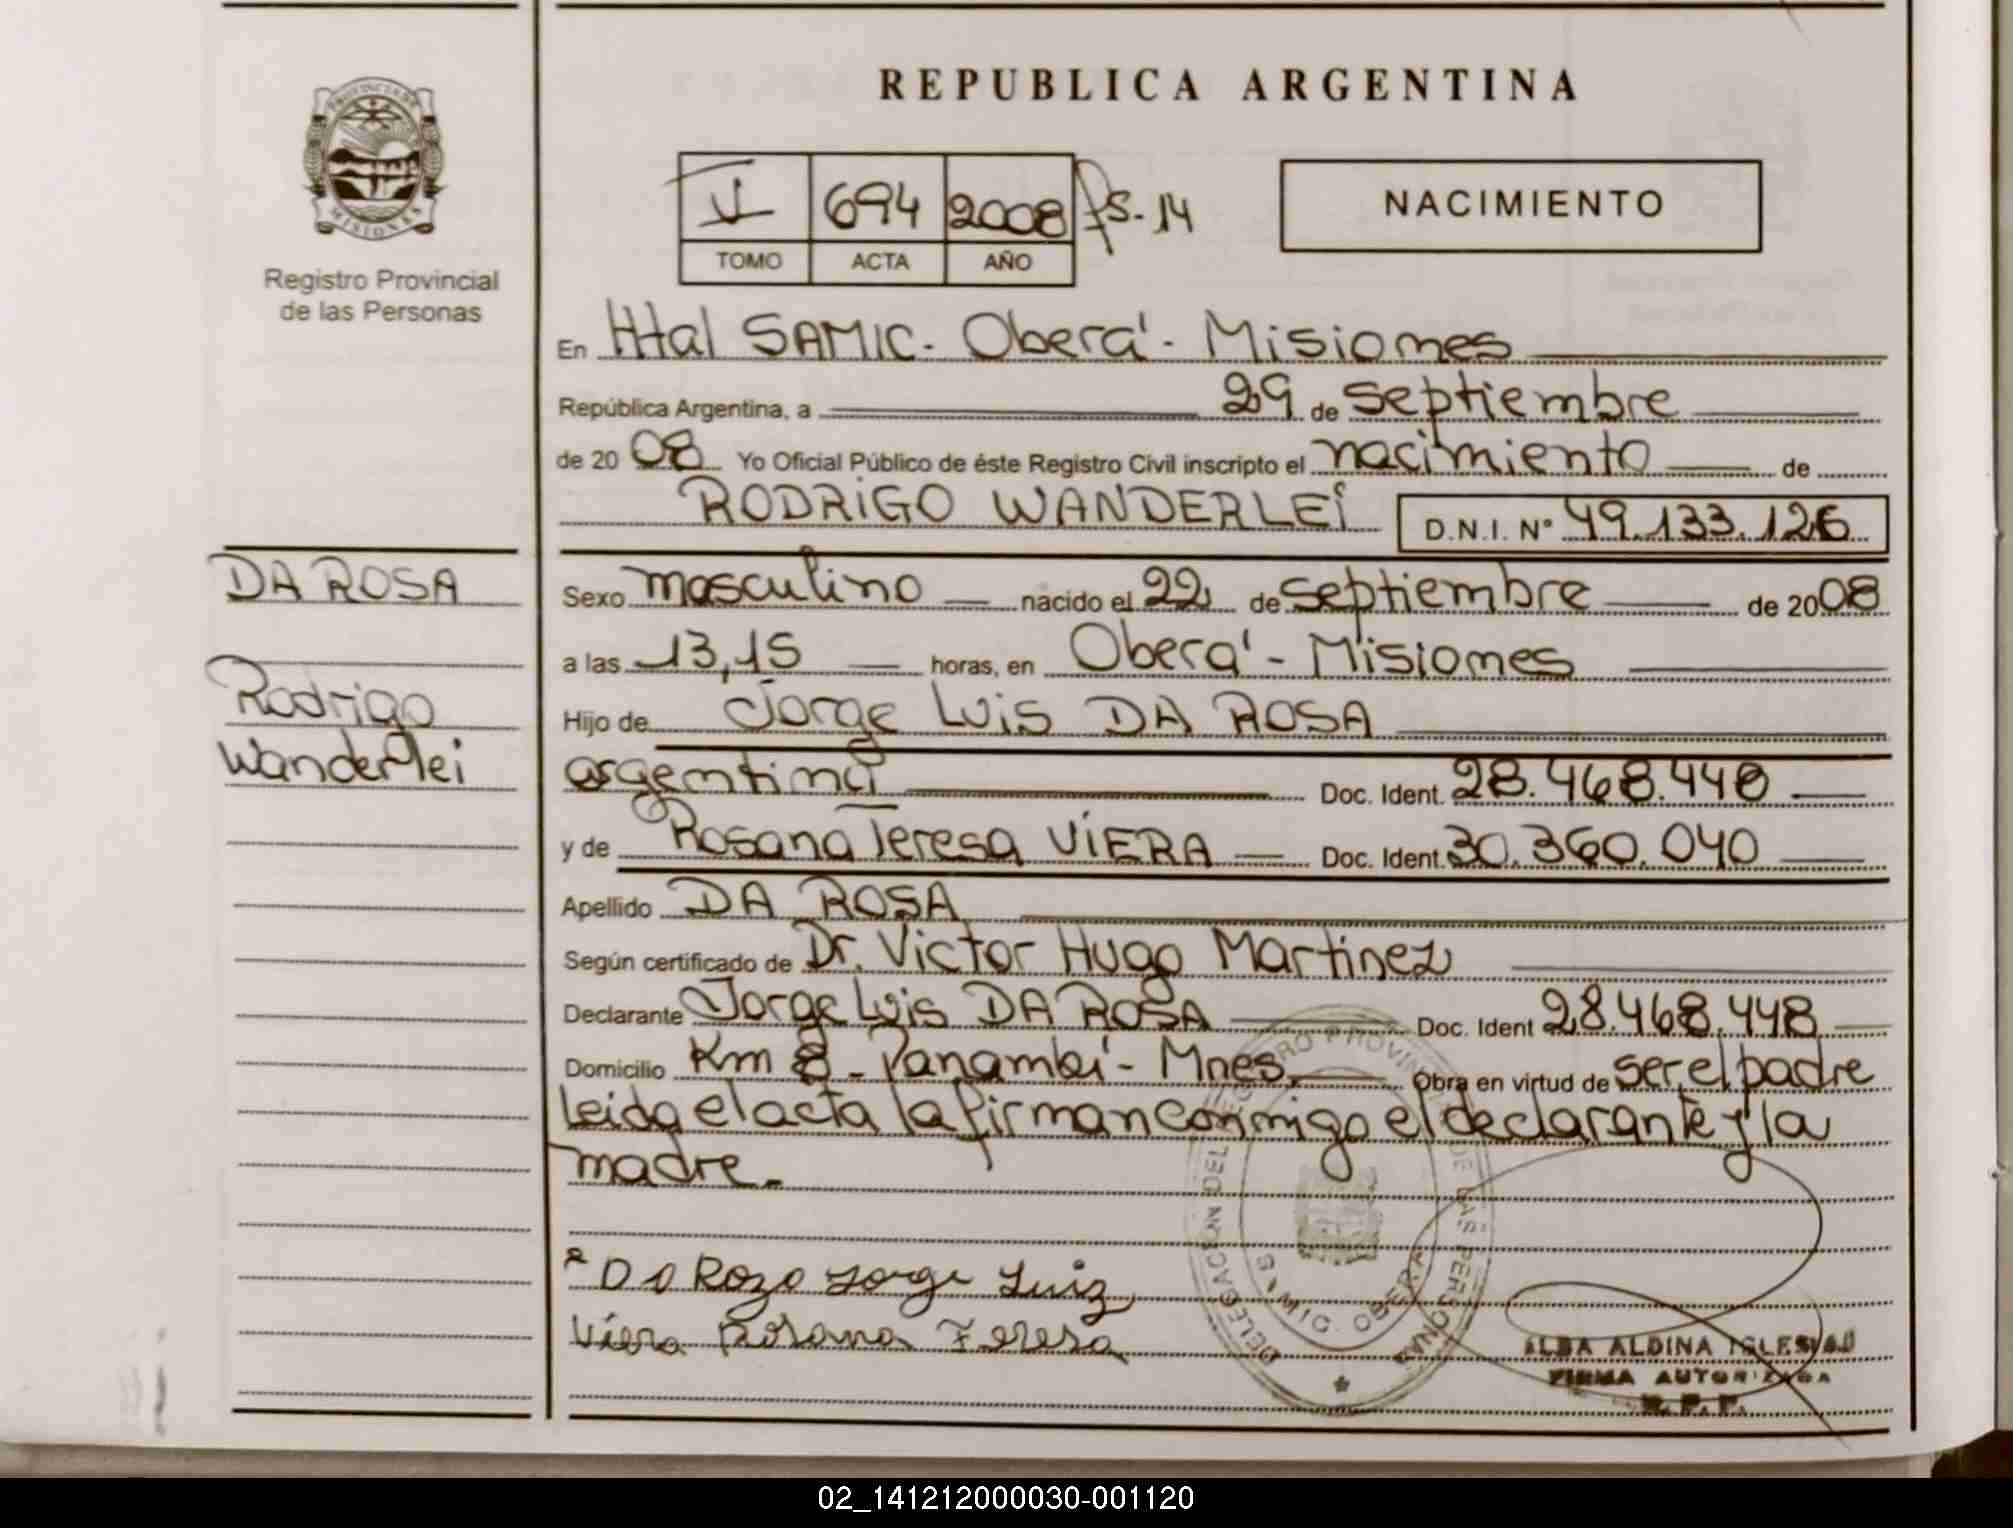 REPUBLICA ARGENTINA
PROVINCIA DE
MISIONES
Registro Provincial
de las Personas
V 694 2008 fs-14
TOMO ACTA AÑO
NACIMIENTO
En Htal SAMIC. Oberá - Misiones
República Argentina, a 29 de septiembre
de 2008 Yo Oficial Público de éste Registro Civil inscripto el nacimiento de
RODRIGO WANDERLEI D.N.I. Nº 49.133.126
DA ROSA
Rodrigo
Wanderlei
Sexo masculino nacido el 22 de septiembre de 2008
a las 13,15 horas, en Oberá - Misiones
Hijo de Jorge Luis DA ROSA
argentina Doc. Ident. 28.468.448
y de Rosana Teresa VIERA Doc. Ident. 30.360.040
Apellido DA ROSA
Según certificado de Dr. Victor Hugo Martinez
Declarante Jorge Luis DA ROSA Doc. Ident 28.468.448
Domicilio Km 8 - Panambí - Mnes. Obra en virtud de ser el padre
Leida el acta la firman conmigo el declarante y la
madre.
Da Roza Jorge Luiz
Viera Rosana Teresa
DELEGACION DEL REGISTRO PROVINCIAL DE LAS PERSONAS
SAMIC. OBERA
ALBA ALDINA IGLESIAS
FIRMA AUTORIZADA
R. P. P.
02_141212000030-001120